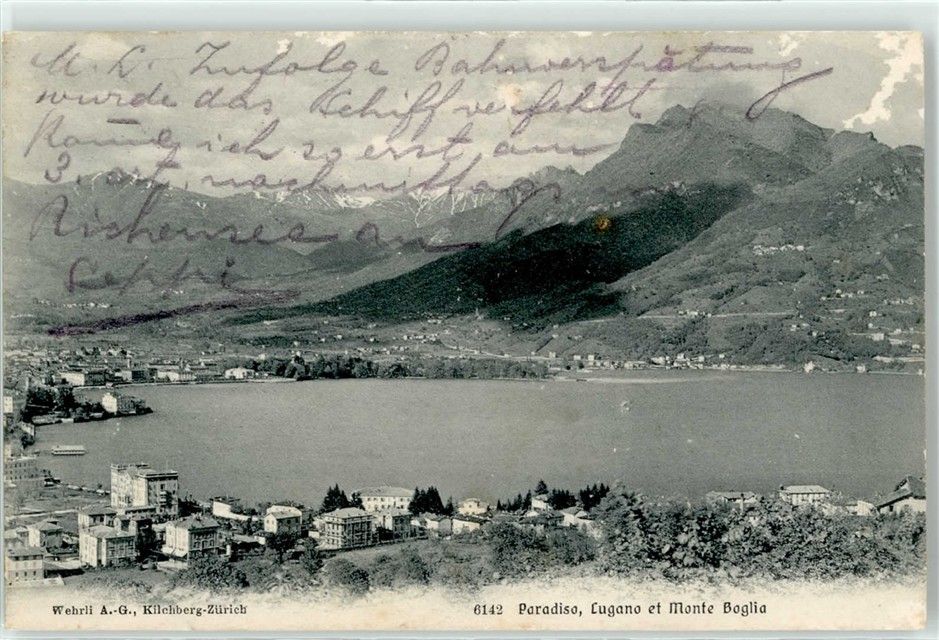 M. L. Zufolge Bahnverspätung
wurde das Schiff verfehlt
Komme ich so erst am
3. nachmittags
an
Seppi
Wehrli A.-G., Kilchberg-Zürich
6142 Paradiso, Lugano et Monte Boglia